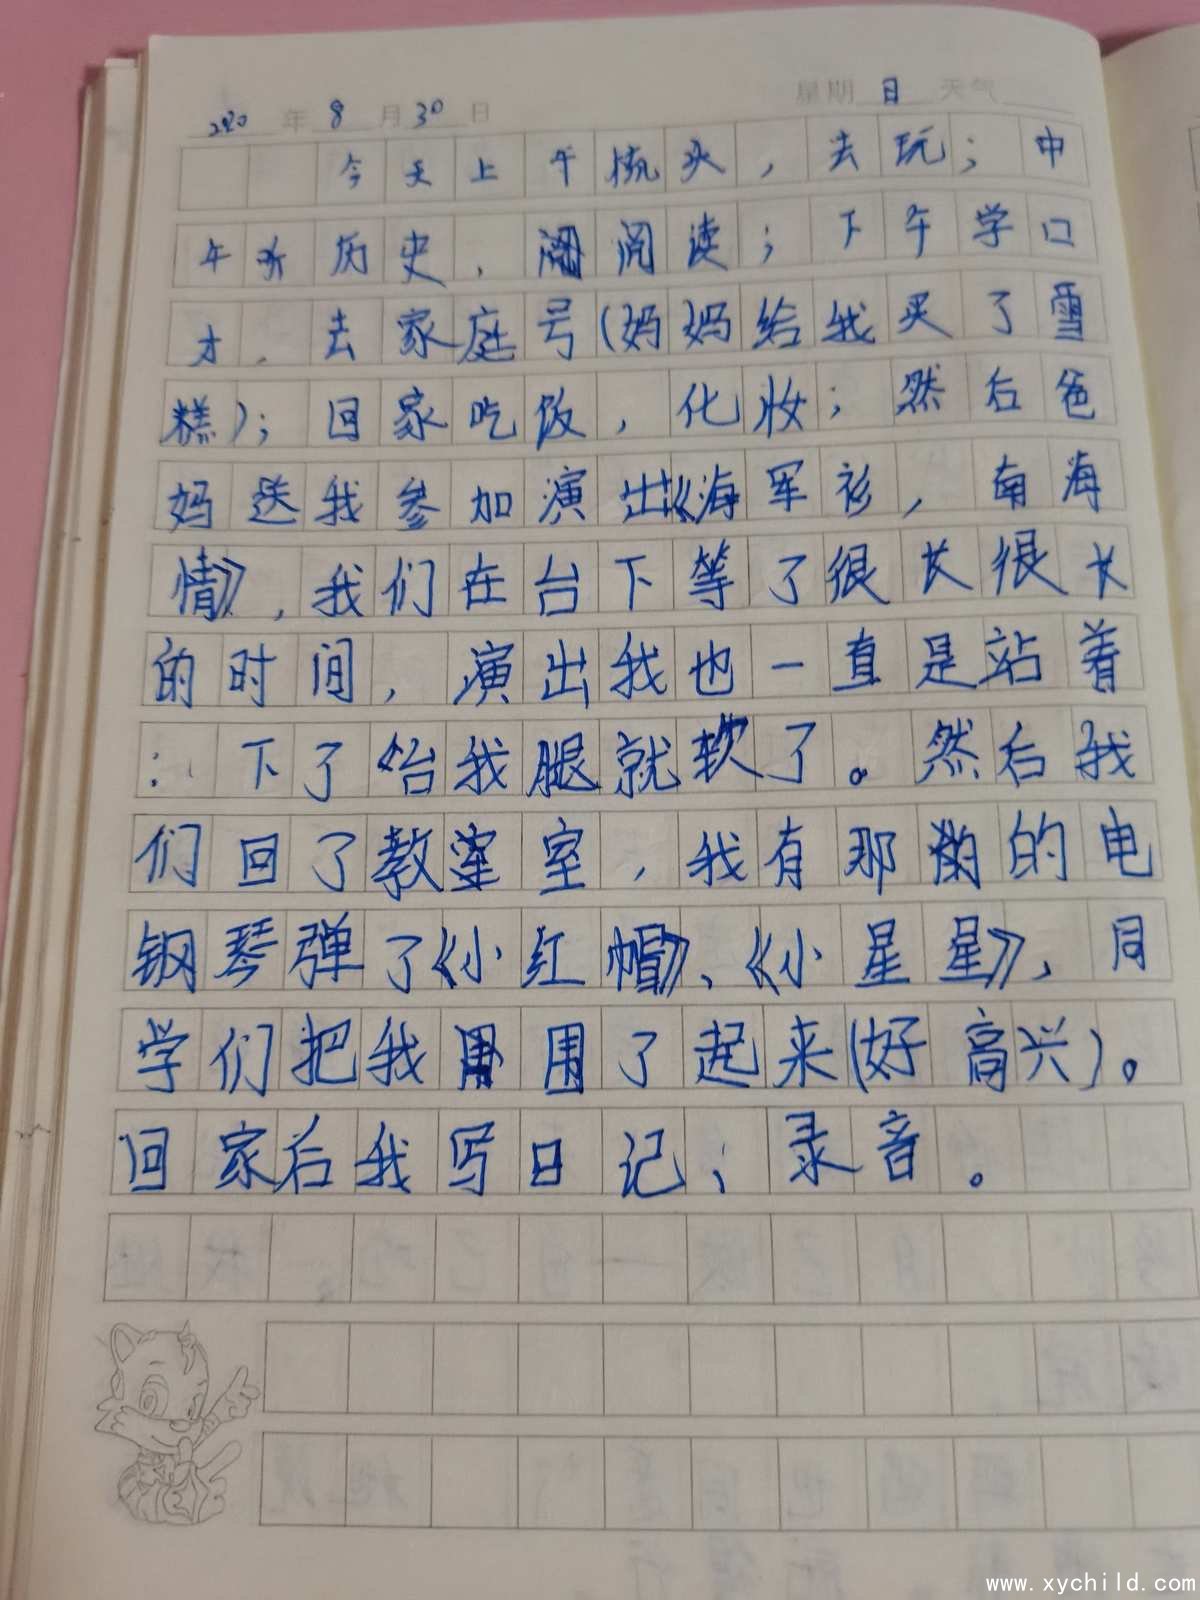 2020年8月30日 星期日 天气
今天上午梳头，去玩；中
午听历史，阅读；下午学口
才，去家庭号(妈妈给我买了雪
糕)；回家吃饭，化妆；然后爸
妈送我参加演出《海军衫，南海
情》，我们在台下等了很长很长
的时间，演出我也一直是站着
；下了台我腿就软了。然后我
们回了教室，我有那的电
钢琴弹了《小红帽》、《小星星》，同
学们把我围了起来(好高兴)。
回家后我写日记；录音。
www.xychild.com